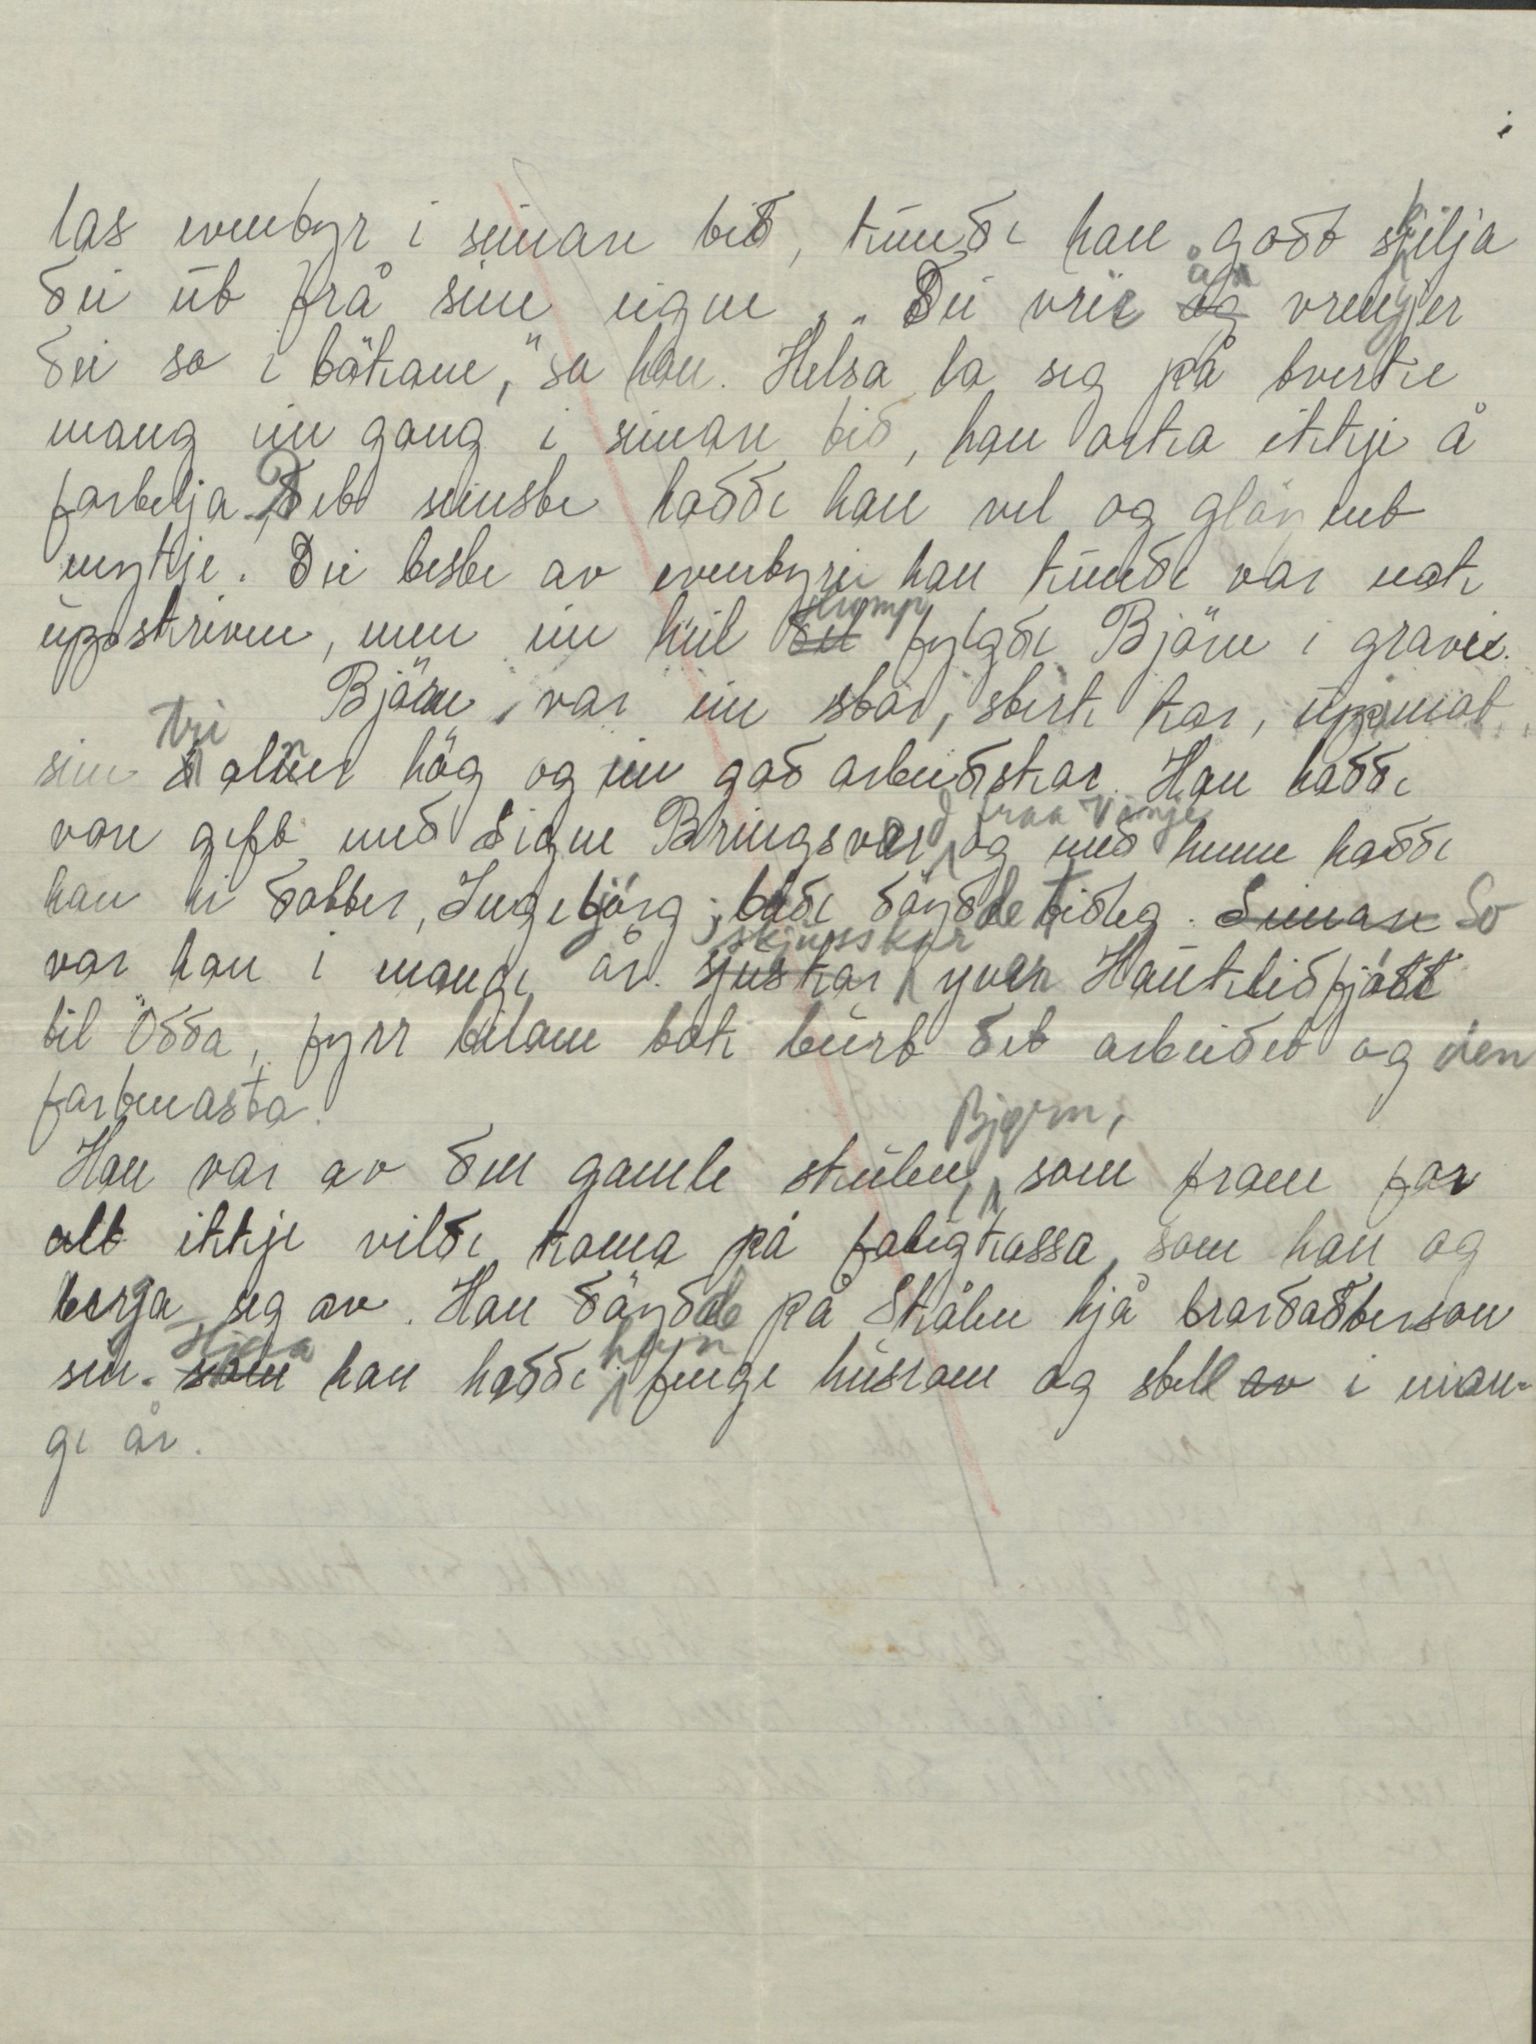 las eventyr i seinare tid, kunde han godt skilja
dei ut frå sine eigne. "Dei vrie ån vrengjer
dei so i bökane," sa han. Helsa la seg på tverke
mang ein gong i seinare tid, han orka ikkje å
fortelja. Det seinste hadde han vel og glöymt
mykje. Dei beste av eventyri han kunde var nok
uppskrivne, men ein heil del fylgde Björn i gravei.
Björn var ein stor, sterk kar, uppimot
sine tri alner hög og ein god arbeidskar. Han hadde
vore gift med Signe Bringsverd fraa Vinje og med henne hadde
han ei dotter, Ingebjörg; båe döydde tidleg. Seinare So
var han i mange år. sjuskar skjusskar yver Haukelidfjöll
til Odda, fyrr bilane tok burt det arbeidet og den
fortenasta.
Han var av den gamle skulen, Bjørn, som fram for
alt ikkje vilde koma på fatigkassa, som han og
berga seg av. Han döydde på Skålen hjå brordotterson
sin. som han hadde fenge husrom og stell av i man-
ge år.